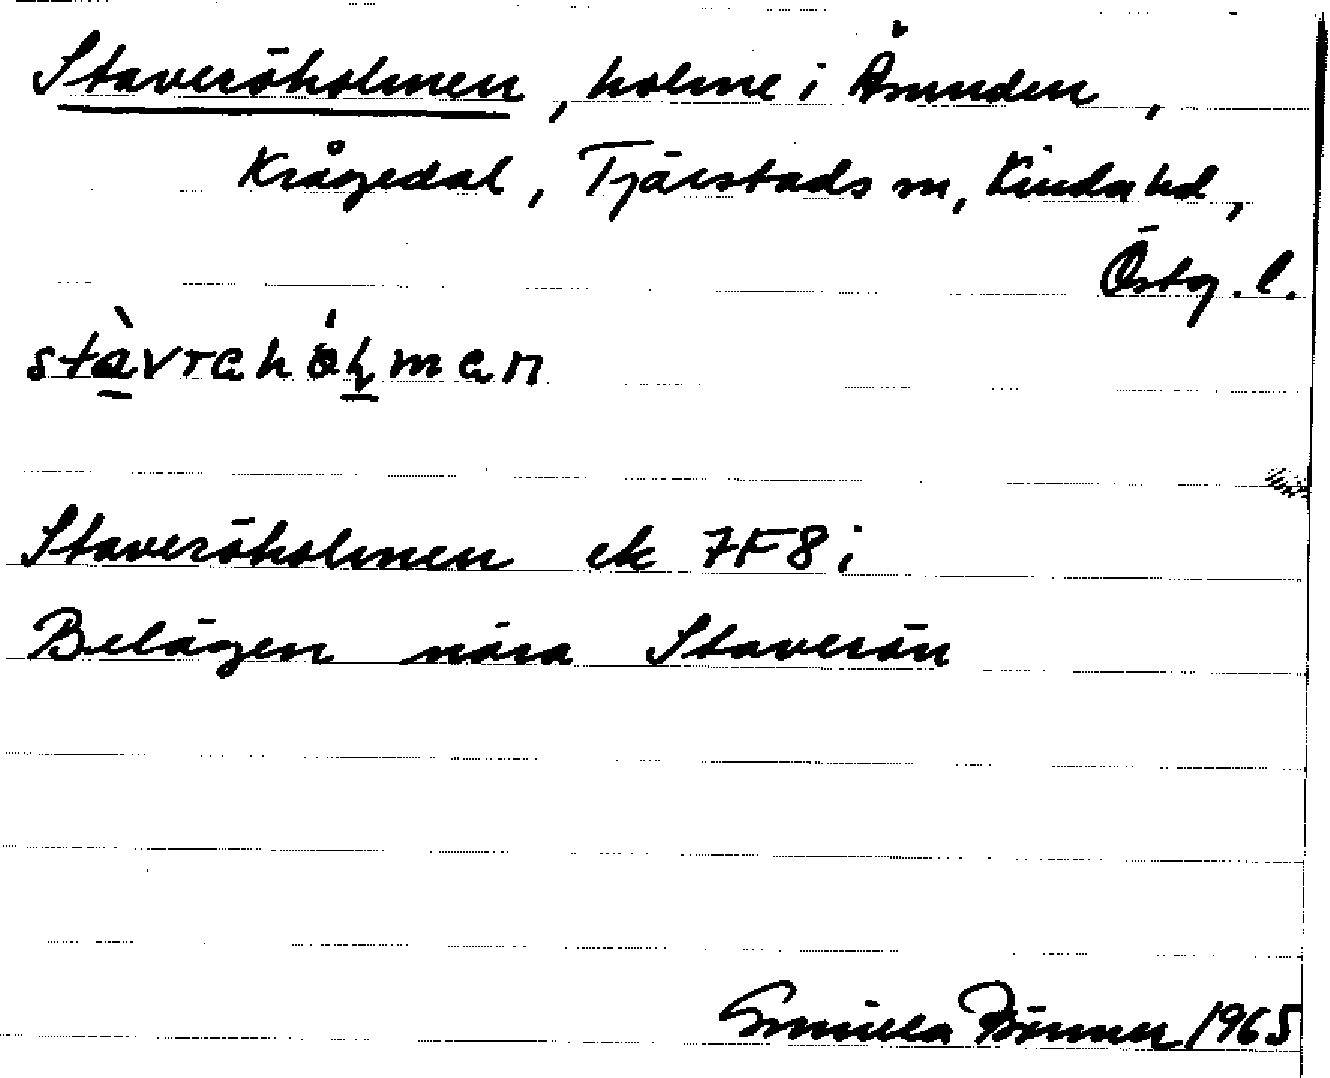 Staveröholmen, holme i Åsunden,
Krågedal, Tjärstads sn, Kinda hd,
Östg. l.
stàvrehólmen
Staveröholmen ek 7F8i
Belägen nära Staverön
Gunilla 1965